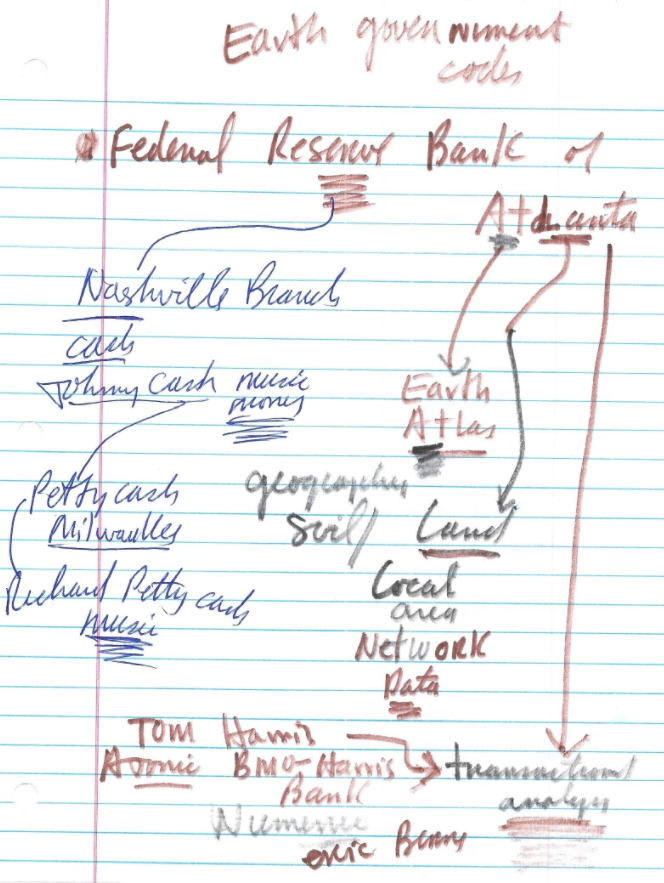 Earth government
codes
Federal Reserve Bank of
Atlanta
Nashville Branch
cash
Johnny Cash music
money
Earth
Atlas
geography
Soil
Land
Petty cash
Milwaukee
Richard Petty cash
music
Local
area
Network
Data
Tom Harris
Atomic BMO-Harris
Bank
transactional
analysis
Numeric
eric Berne